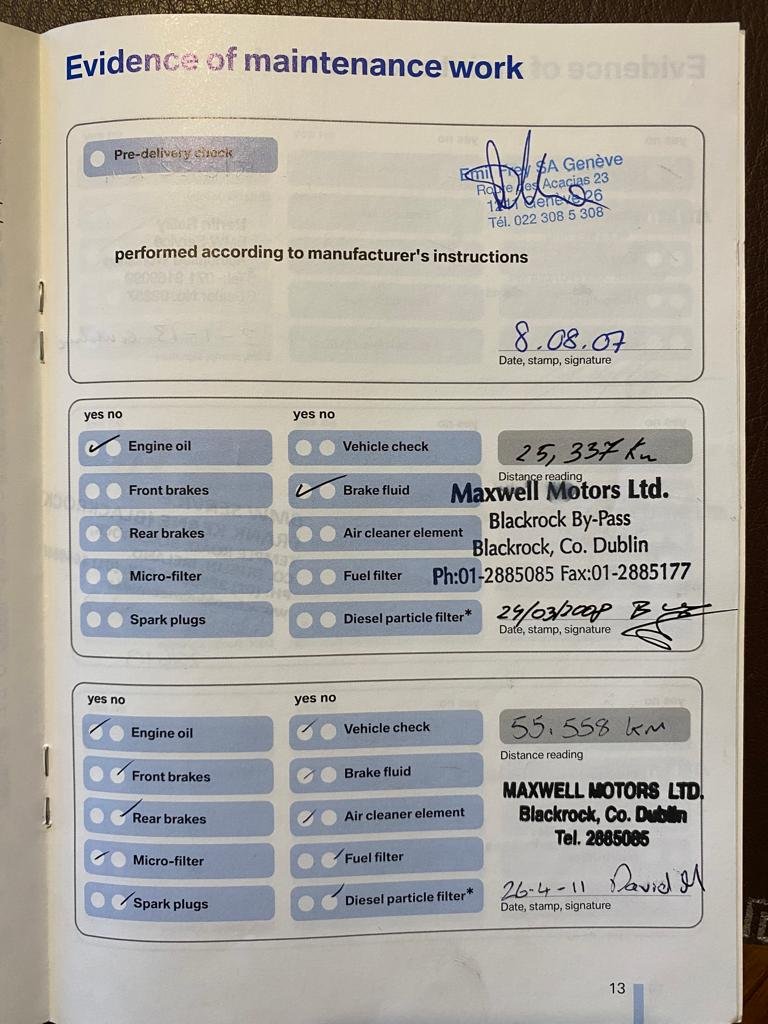 Evidence of maintenance work
Pre-delivery check
Emil Frey SA Genève
Route des Acacias 23
1211 Genève 26
Tél. 022 308 5 308
performed according to manufacturer's instructions
8.08.07
Date, stamp, signature
yes no
yes no
Engine oil
Vehicle check
25,337 Km
Distance reading
Front brakes
Brake fluid
Maxwell Motors Ltd.
Blackrock By-Pass
Rear brakes
Air cleaner element
Blackrock, Co. Dublin
Micro-filter
Fuel filter
Ph:01-2885085 Fax:01-2885177
Spark plugs
Diesel particle filter*
Date, stamp, signature
yes no
yes no
Engine oil
Vehicle check
55.558 km
Distance reading
Front brakes
Brake fluid
MAXWELL MOTORS LTD.
Rear brakes
Air cleaner element
Blackrock, Co. Dublin
Tel. 2885085
Micro-filter
Fuel filter
Spark plugs
Diesel particle filter*
26-4-11 David M
Date, stamp, signature
13